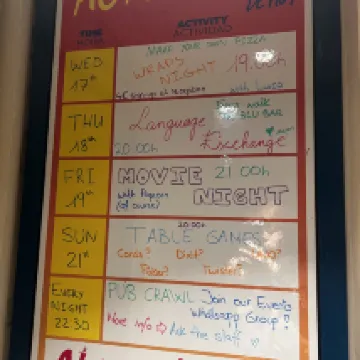 TIME
HORA
ACTIVITY
ACTIVIDAD
WED
17th
MAKE YOUR OWN PIZZA
WRAPS
NIGHT 19:00h
5€ sign-up at reception
with Luca
THU
18th
Language
Exchange
20:00h
BLU BAR
FRI
19th
MOVIE 21:00h
NIGHT
with Popcorn
(of course)
SUN
21st
20:00h
TABLE GAMES
Cards? Uno?
Poker? Twister?
EVERY
NIGHT
22:30
PUB CRAWL Join our Events
Whatsapp Group!
More info ⇒ Ask the staff ♡